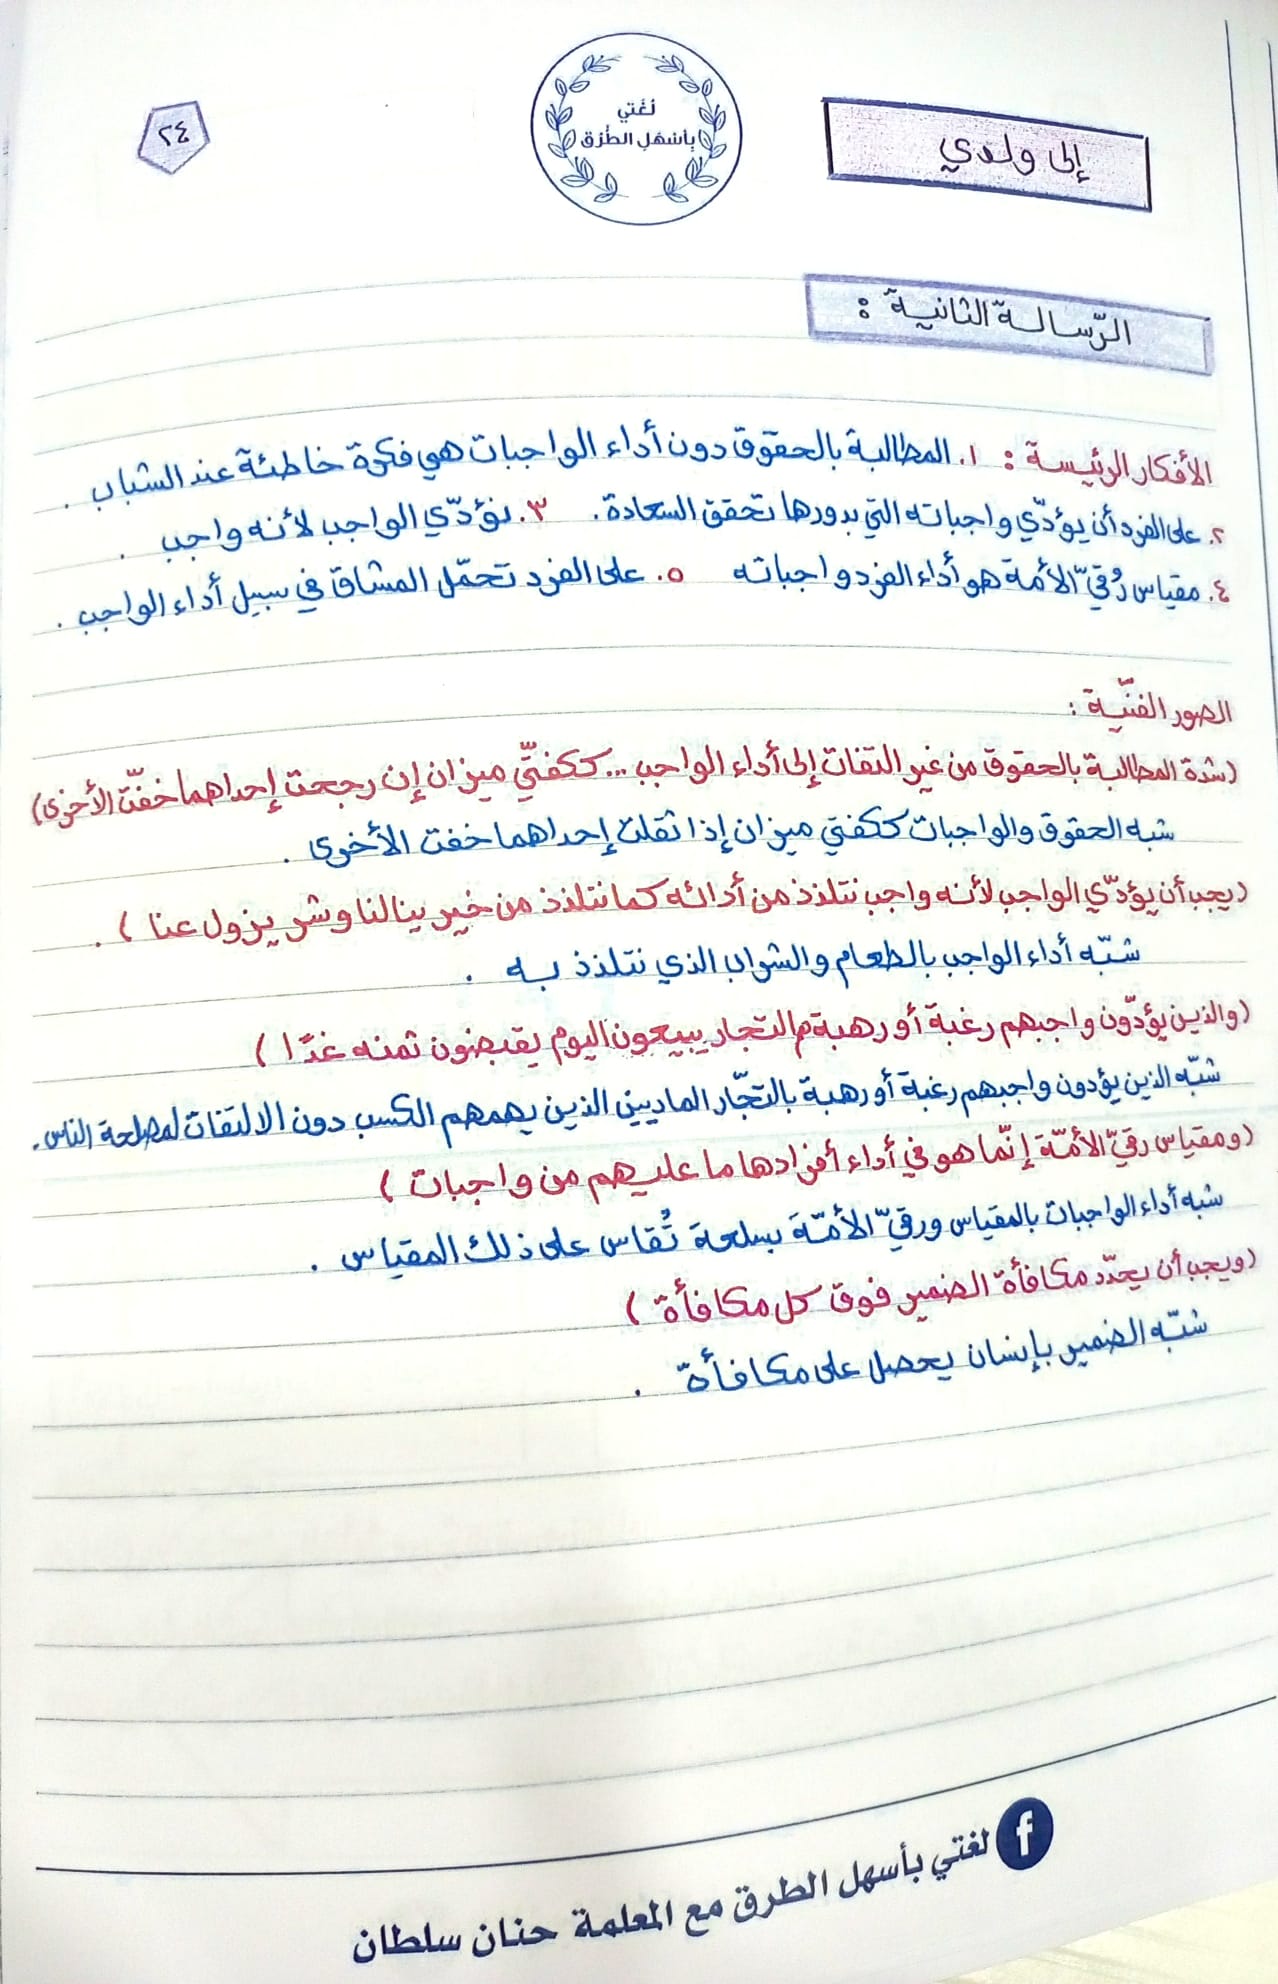 إلى ولدي
لغتي
بأسهل الطرق
٢٤
الرّسالة الثانية :
الأفكار الرئيسة : ١. المطالبة بالحقوق دون أداء الواجبات هي فكرة خاطئة عند الشباب .
٢. على الفرد أن يؤدّي واجباته التي بدورها تحقق السعادة. ٣. نؤدّي الواجب لأنه واجب .
٤. مقياس رُقيّ الأمة هو أداء الفرد واجباته ٥. على الفرد تحمّل المشاق في سبيل أداء الواجب .
الصور الفنّية :
(شدة المطالبة بالحقوق من غير التفات إلى أداء الواجب ... ككفتيّ ميزان إن رجحت إحداهما خفّت الأخرى)
شبه الحقوق والواجبات ككفتي ميزان إذا ثقلت إحداهما خفت الأخرى .
(يجب أن يؤدّي الواجب لأنه واجب نتلذذ من أدائه كما نتلذذ من خير ينالنا وشر يزول عنا ) .
شبّه أداء الواجب بالطعام والشراب الذي نتلذذ به .
(والذين يؤدّون واجبهم رغبة أو رهبة هم التجار يبيعون اليوم يقبضون ثمنه غدًا )
شبّه الذين يؤدون واجبهم رغبة أو رهبة بالتجّار الماديين الذين يهمهم الكسب دون الالتفات لمصلحة الناس .
(ومقياس رقيّ الأمّة إنّما هو في أداء أفرادها ما عليهم من واجبات )
شبه أداء الواجبات بالمقياس ورقيّ الأمّة بسلعة تُقاس على ذلك المقياس .
(ويجب أن يحدّد مكافأة الضمير فوق كل مكافأة )
شبّه الضمير بإنسان يحصل على مكافأة .
لغتي بأسهل الطرق مع المعلمة حنان سلطان